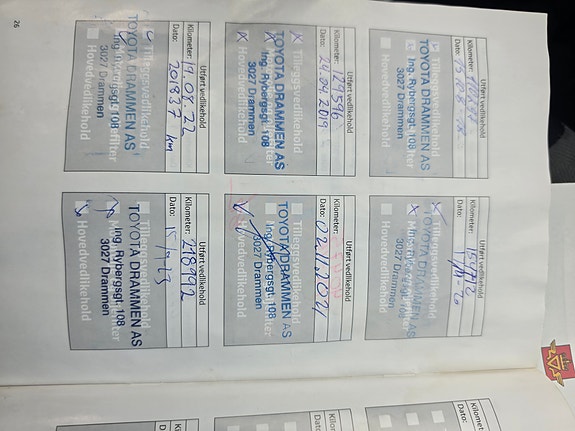 Utført vedlikehold
Kilometer:
Dato:
Tilleggsvedlikehold
TOYOTA DRAMMEN AS
Ing. Rybergsgt. 108
3027 Drammen
Hovedvedlikehold
Utført vedlikehold
Kilometer:
Dato:
Tilleggsvedlikehold
TOYOTA DRAMMEN AS
Ing. Rybergsgt. 108
3027 Drammen
Hovedvedlikehold
Utført vedlikehold
Kilometer: 129596
Dato: 24.09.2019
Tilleggsvedlikehold
TOYOTA DRAMMEN AS
Ing. Rybergsgt. 108
3027 Drammen
Hovedvedlikehold
Utført vedlikehold
Kilometer:
Dato: 02.11.2021
Tilleggsvedlikehold
TOYOTA DRAMMEN AS
Ing. Rybergsgt. 108
3027 Drammen
Hovedvedlikehold
Utført vedlikehold
Kilometer: 19.08.22
Dato: 201837 km
Tilleggsvedlikehold
TOYOTA DRAMMEN AS
Ing. Rybergsgt. 108
3027 Drammen
Hovedvedlikehold
Utført vedlikehold
Kilometer: 218992
Dato: 15/9-23
Tilleggsvedlikehold
TOYOTA DRAMMEN AS
Ing. Rybergsgt. 108
3027 Drammen
Hovedvedlikehold
Kilometer:
Dato:
26